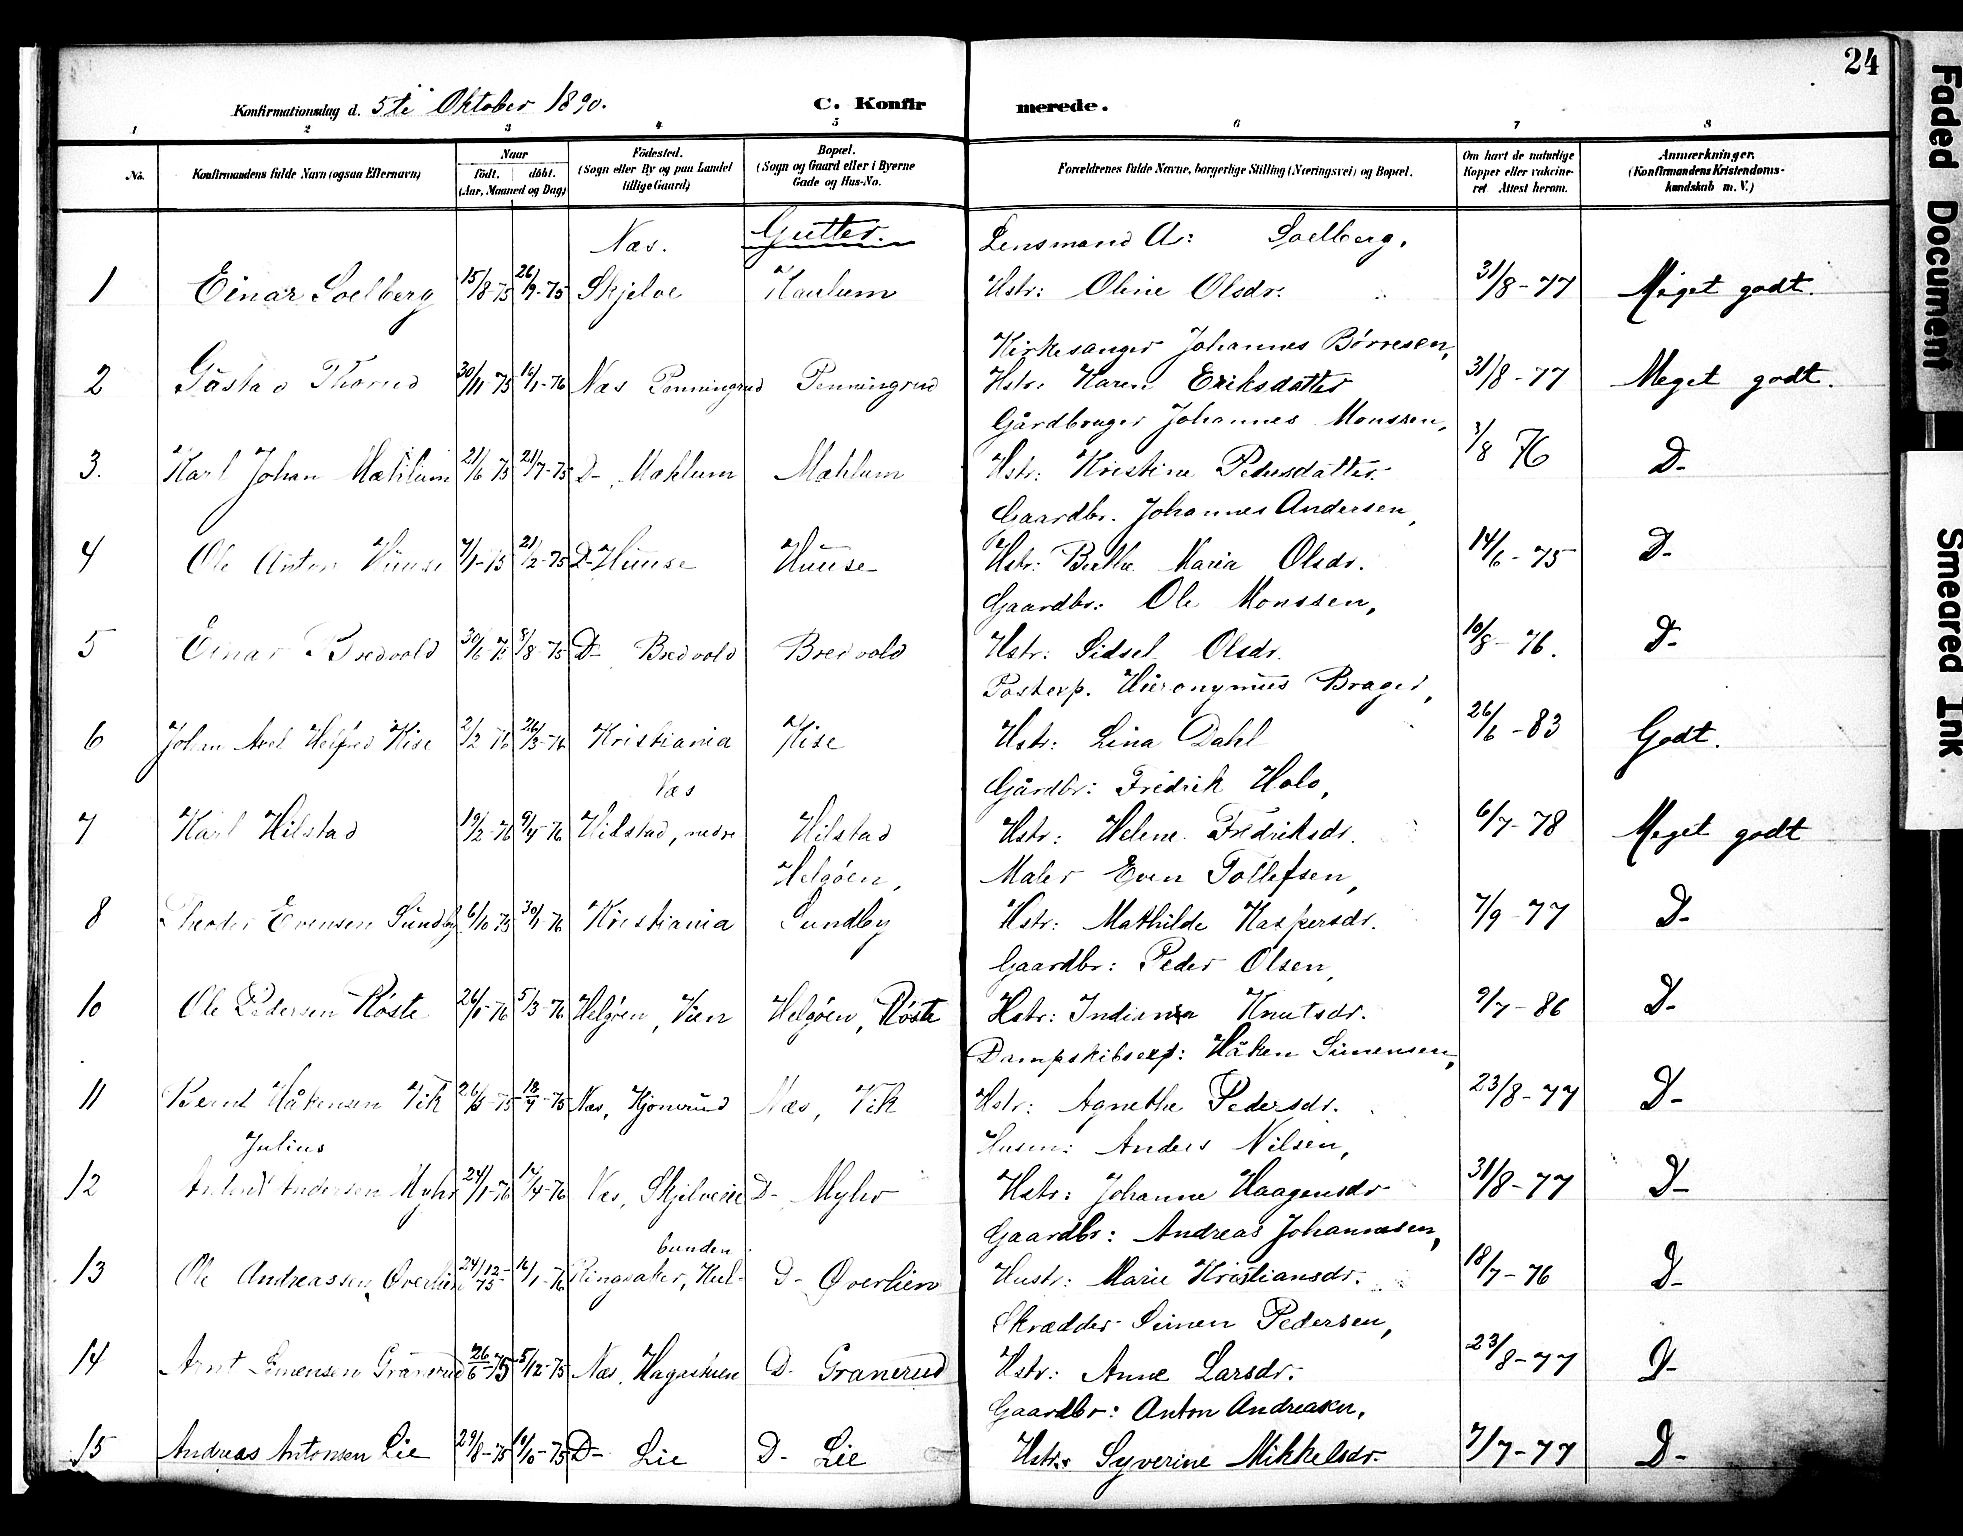 24
Konfirmationsdag d. 5te Oktober 1890. C. Konfirmerede.
1 2 3 4 5 6 7 8
No. Konfirmandens fulde Navn (ogsaa Efternavn) Naar født. døbt. (Aar, Maaned og Dag) Fødested. (Sogn eller By og paa Landet tillige Gaard) Bopæl. (Sogn og Gaard eller i Byerne Gade og Hus-No. Forældrenes fulde Navne, borgerlige Stilling (Næringsvei) og Bopæl. Om havt de naturlige Kopper eller vakcineret Attest herom. Anmærkninger. (Konfirmandens Kristendomskundskab m. V.)
Næs. Gutter. Lensmand A: Soelberg,
1 Einar Soelberg 15/8-75 26/9-75 Skjelve Haulum Hstr: Oline Olsdr. 31/8-77 Meget godt.
Kirkesanger Johannes Børresen,
2 Gustav Thorud 30/11 75 16/1-76 Næs Penningrud Penningrud Hstr: Karen Eriksdatter 31/8-77 Meget godt.
Gårdbruger Johannes Monssen,
3. Karl Johan Mæhlum 21/6 75 21/7-75 D- Mæhlum Mæhlum Hstr: Kristine Pedersdatter 3/8 76 D-
Gaardbr. Johannes Andersen,
4 Ole Anton Huuse 7/1-75 21/2-75 D- Huuse Huuse Hstr: Berthe Maria Olsdr. 14/6-75 D-
Gaardbr: Ole Monssen,
5 Einar Bredvold 30/6-75 8/8-75 D- Bredvold Bredvold Hstr: Sidsel Olsdr. 10/8-76. D-
Postexp. Hieronymus Brager,
6 Johan Axel Helfred Kise 2/2-76 26/3-76 Kristiania Kise Hstr: Lina Dahl 26/6-83 Godt.
Næs Gårdbr: Fredrik Holo,
7 Karl Hilstad 19/2-76 9/4-76 Hilstad, nedre Hilstad Hstr: Helene Fredriksdr. 6/7-78 Meget godt
Helgøen, Maler Even Tollefsen,
8 Theodor Evensen Sundby 6/10 75 30/1-76 Kristiania Sundby Hstr: Mathilde Kaspersdr. 7/9-77 D-
Gaardbr: Peder Olsen,
10 Ole Pedersen Røste 26/1-76 5/3-76 Helgøen, Vien Helgøen, Røste Hstr: Indianna Knutsdr. 9/7-86 D-
Dampskibsexp: Håken Simensen,
11 Bernt Håkensen Vik 26/5-75 18/7-75 Næs, Kjonerud Næs, Vik Hstr: Agnethe Pedersdr. 23/8-77 D-
Julius Husm: Anders Nilsen,
12 Andersen Myhr 24/1-76 17/4-76 Næs, Skjelverie D- Myhr Hstr: Johanne Haagensdr 31/8-77 D-
bunden Gaardbr: Andreas Johannesen,
13 Ole Andreassen Øverlien 24/12-75 16/1-76 Ringsaker, Hul- D- Øverlien Hustr: Marie Kristiansdr. 18/7-76 D-
Skrædder Simen Pedersen,
14 Arnt Simensen Granerud 26/6-75 5/12-75 Næs, Hageskuen D- Granerud Hstr: Anne Larsdr. 23/8-77 D-
Gaardbr: Anton Andreasen,
15 Andreas Antonsen Lie 29/8-75 10/10-75 D- Lie D- Lie Hstr: Syverine Mikkelsdr. 7/7-77 D-
Faded Document
Smeared Ink